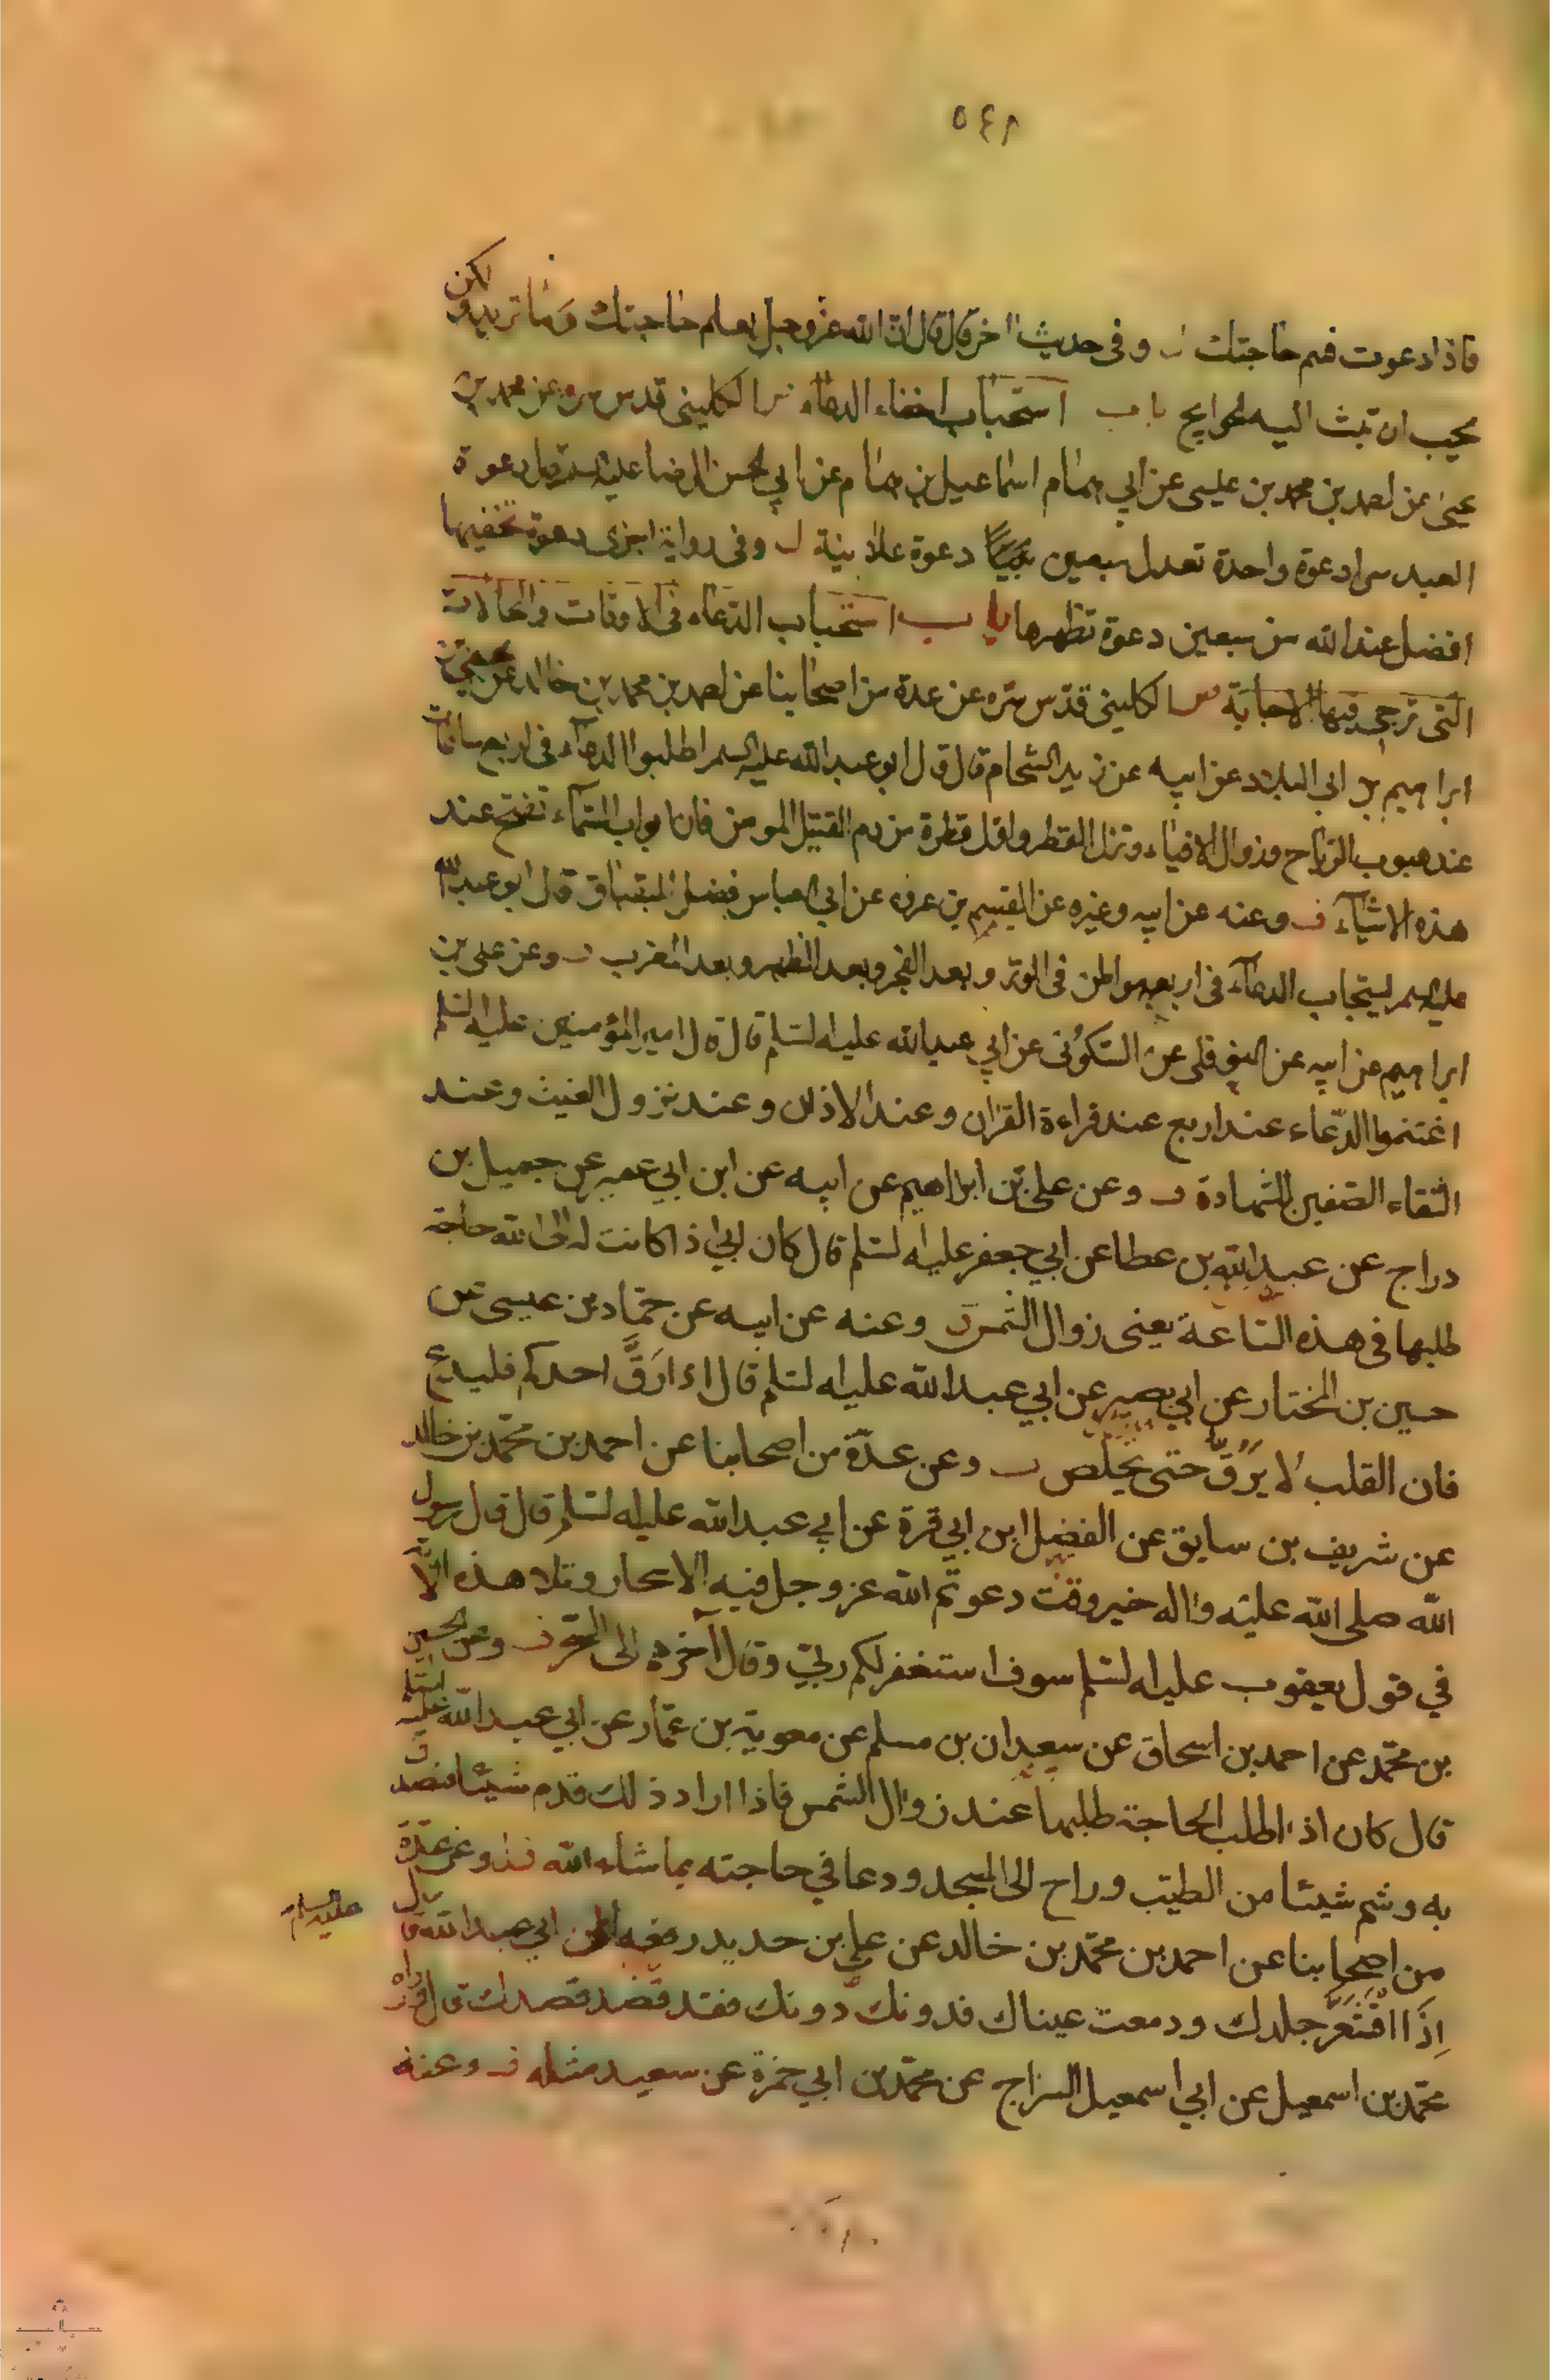 ٥٤٨
فاذا دعوت فسم حاجتك وفي حديث اخر قال قال ان الله عز وجل يعلم حاجتك وما تريد ولكن
يحب ان تبث اليه الحوايج باب استحباب اخفاء الدعاء الكليني قدس سره عن محمد بن
يحيى عن احمد بن محمد بن عيسى عن ابي همام اسماعيل بن همام عن ابي الحسن الرضا عليه السلم قال دعوة
العبد سرا دعوة واحدة تعدل سبعين دعوة علانية وفي رواية اخرى دعوة تخفيها
افضل عند الله من سبعين دعوة تظهرها باب استحباب الدعاء في الاوقات والحالات
التي ترجى فيها الاجابة الكليني قدس سره عن عدة من اصحابنا عن احمد بن محمد بن خالد عن يحيى بن
ابراهيم بن ابي البلاد عن ابيه عن زيد الشحام قال قال ابو عبد الله عليه السلم اطلبوا الدعاء في اربع ساعات
عند هبوب الرياح وزوال الافياء ونزل القطر واول قطرة من دم القتيل المومن فان ابواب السماء تفتح عند
هذه الاشياء وعنه عن ابيه وغيره عن القسم بن عروه عن ابي العباس فضل البقباق قال قال ابو عبد الله
عليه السلم يستجاب الدعاء في اربعه مواطن في الوتر وبعد الفجر وبعد الظهر وبعد المغرب وعن علي بن
ابراهيم عن ابيه عن النوفلي عن السكوني عن ابي عبد الله عليه السلم قال قال امير المؤمنين عليه السلم
اغتنموا الدعاء عند اربع عند قراءة القران وعند الاذان وعند نزول الغيث وعند
التقاء الصفين للشهادة وعن علي بن ابراهيم عن ابيه عن ابن ابي عمير عن جميل بن
دراج عن عبد الله بن عطا عن ابي جعفر عليه السلم قال كان ابي اذا كانت له الى الله حاجة
طلبها في هذه الساعة يعني زوال الشمس وعنه عن ابيه عن حماد بن عيسى عن
حسين بن المختار عن ابي بصير عن ابي عبد الله عليه السلم قال اذا رَقَّ احدكم فليدع
فان القلب لا يرق حتى يخلص وعن عدة من اصحابنا عن احمد بن محمد بن خالد
عن شريف بن سابق عن الفضيل ابن ابي قرة عن ابي عبد الله عليه السلم قال قال رسول
الله صلى الله عليه واله خير وقت دعوتم الله عز وجل فيه الاسحار وتلا هذه الآية
في قول يعقوب عليه السلم سوف استغفر لكم ربي وقال اخرهم الى السحر وعن الحسين
بن محمد عن احمد بن اسحاق عن سعدان بن مسلم عن معوية بن عمار عن ابي عبد الله عليه السلم
قال كان اذا طلب الحاجة طلبها عند زوال الشمس فاذا اراد ذلك قدم شيئا فتصدق
به وشم شيئا من الطيب وراح الى المسجد ودعا في حاجته بما شاء الله وعن عدة
من اصحابنا عن احمد بن محمد بن خالد عن علي بن حديد رفعه الى ابي عبد الله عليه السلم قال
اذا اقشعر جلدك ودمعت عيناك فدونك دونك فقد قصد قصدك قال ورواه
محمد بن اسمعيل عن ابي اسمعيل السراج عن محمد بن ابي حمزة عن سعيد مثله وعنه